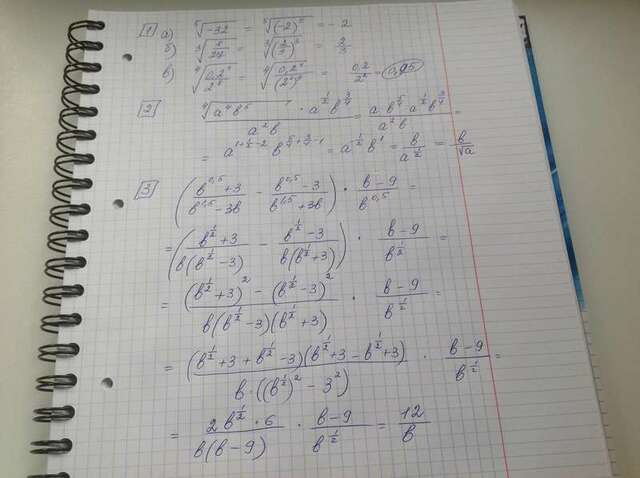 1 а) ⁵√-32 = ⁵√(-2)⁵ = -2
б) ³√8/27 = ³√(2/3)³ = 2/3
в) = 0,2/2² = 0,05
2 · a^(1/2) b^(3/4) / a²b = a b^(5/4) a^(1/2) b^(3/4) / a²b =
= a^(1+1/2-2) b^(5/4+3/4-1) = a^(-1/2) b¹ = b/a^(1/2) = b/√a
3 (b^0,5+3 / b^1,5-3b - b^0,5-3 / b^1,5+3b) · b-9 / b^0,5 =
= (b^(1/2)+3 / b(b^(1/2)-3) - b^(1/2)-3 / b(b^(1/2)+3)) · b-9 / b^(1/2) =
= (b^(1/2)+3)² - (b^(1/2)-3)² / b(b^(1/2)-3)(b^(1/2)+3) · b-9 / b^(1/2) =
= (b^(1/2)+3+b^(1/2)-3)(b^(1/2)+3-b^(1/2)+3) / b·((b^(1/2))²-3²) · b-9 / b^(1/2) =
= 2b^(1/2)·6 / b(b-9) · b-9 / b^(1/2) = 12/b